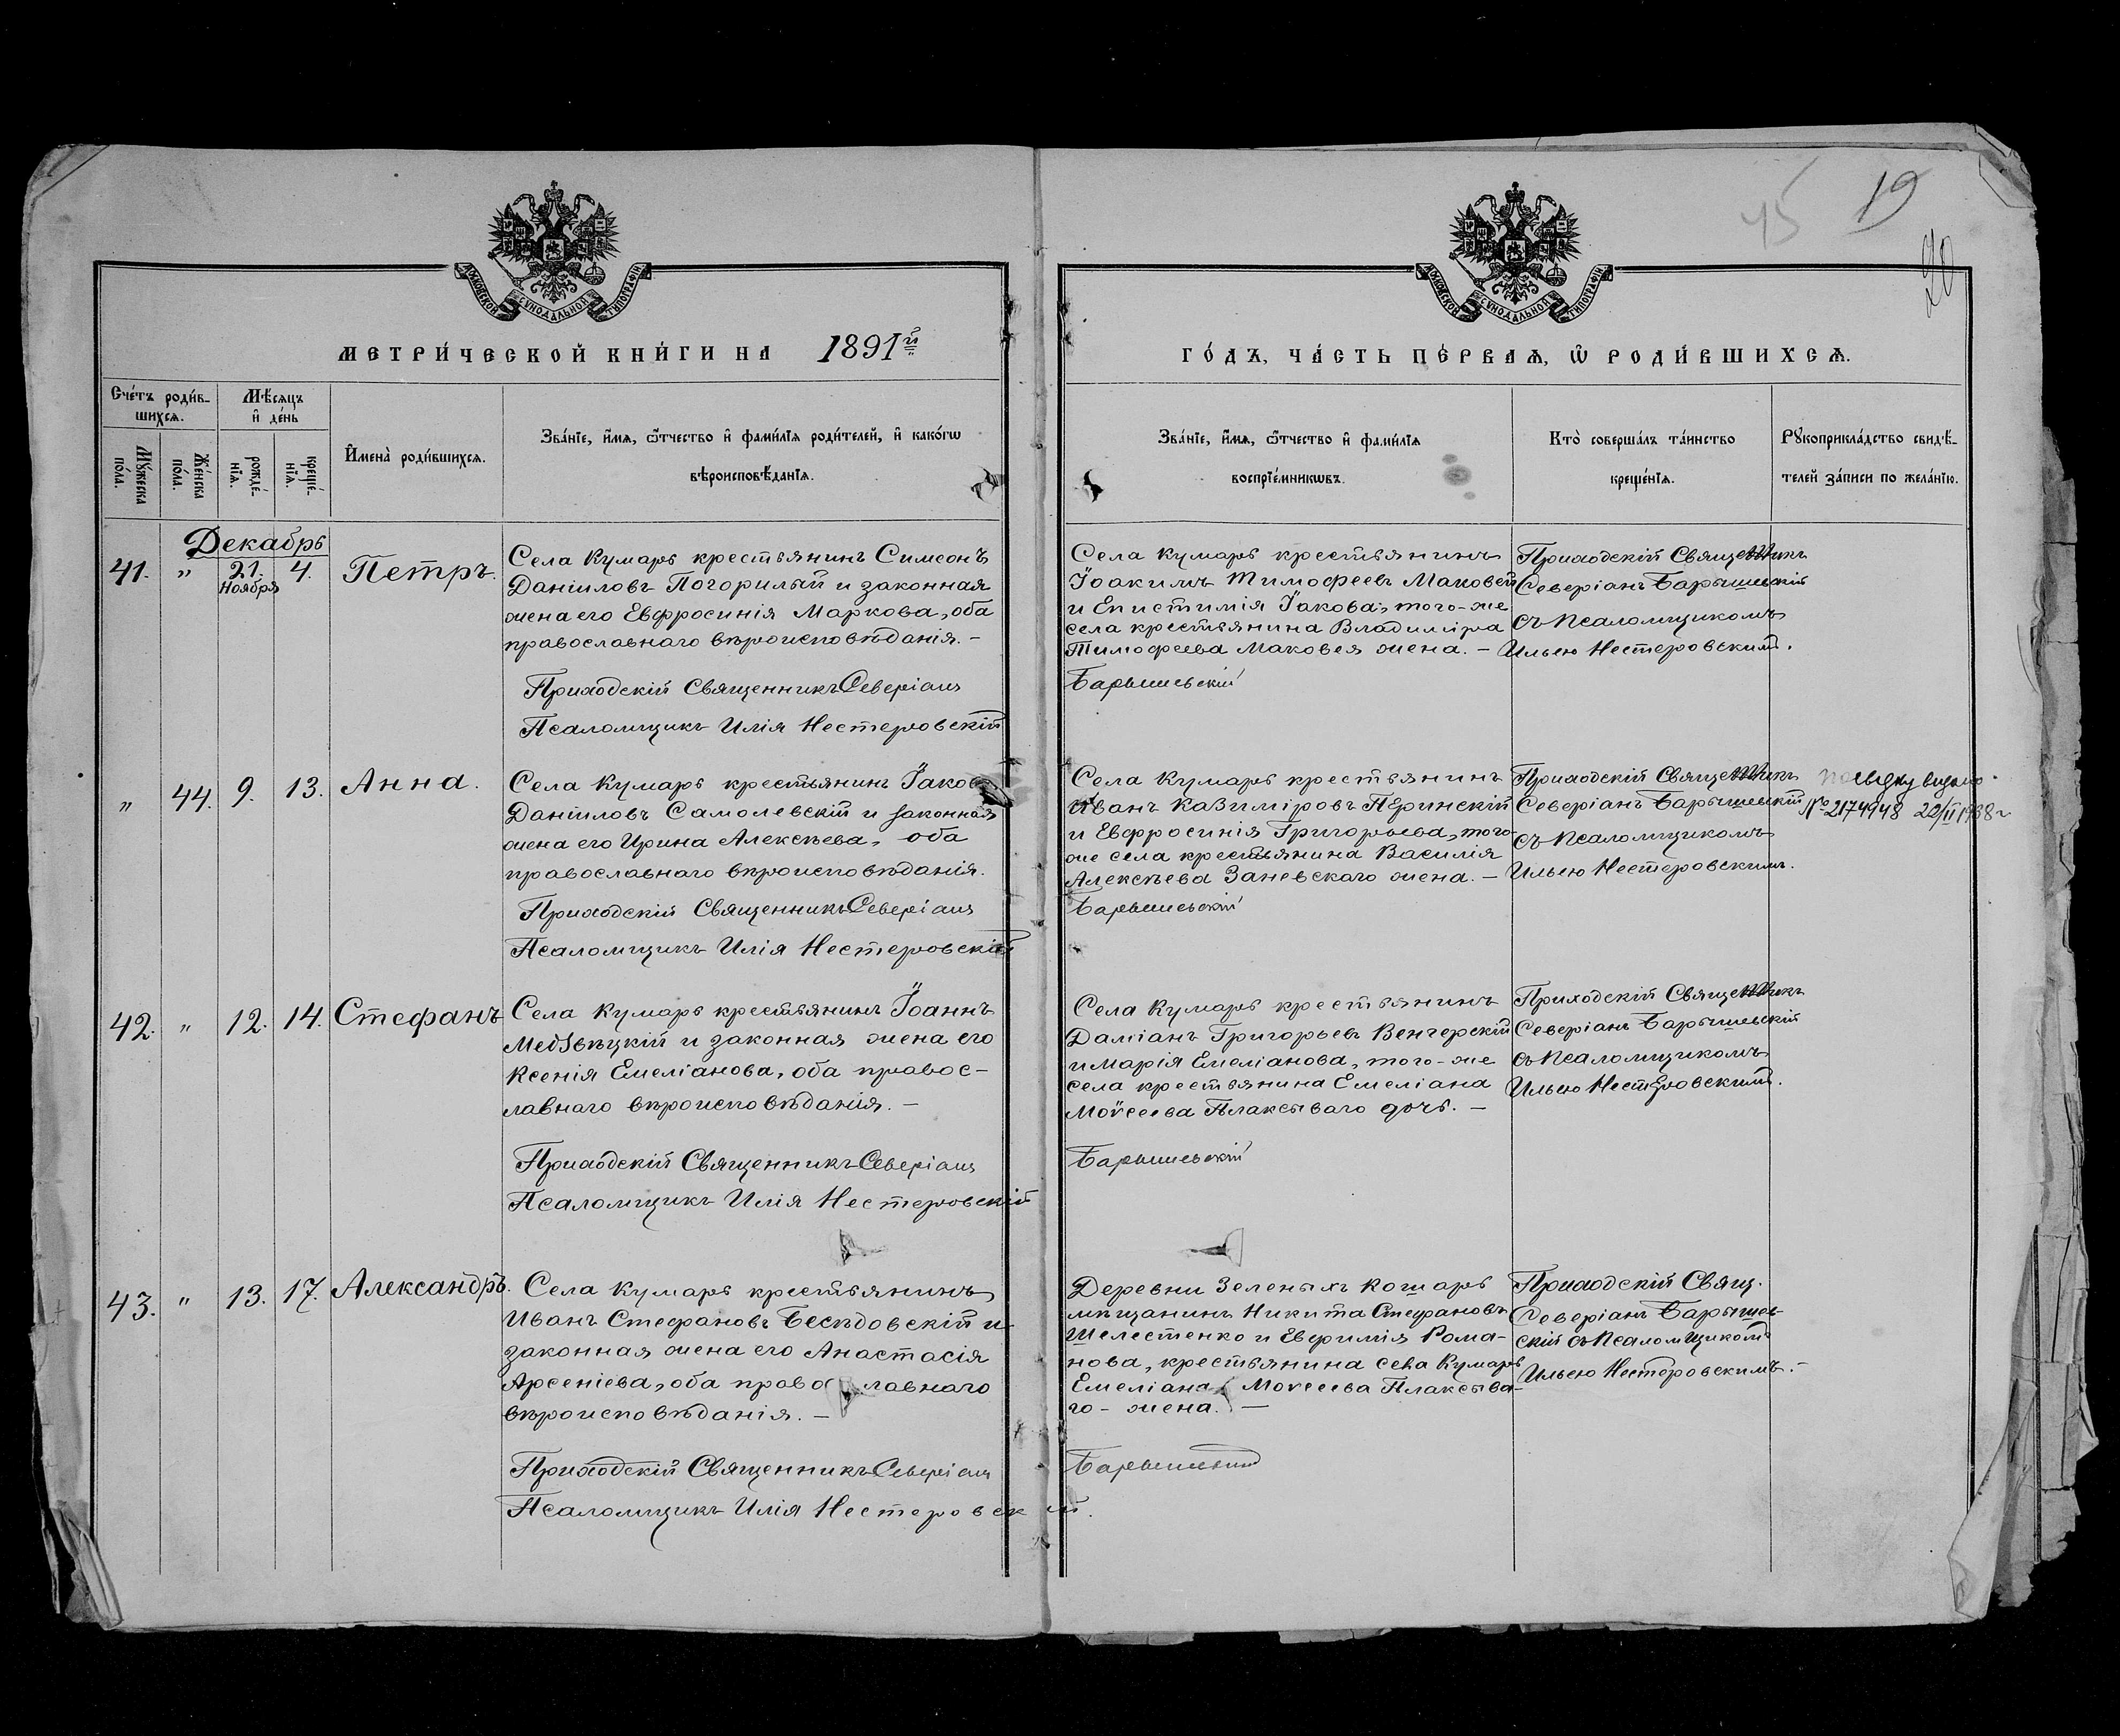 45
19
20
МОСКОВСКОЙ СѴНОДАЛЬНОЙ ТИПОГРАФІИ
МОСКОВСКОЙ СѴНОДАЛЬНОЙ ТИПОГРАФІИ
МЕТРИ́ЧЕСКОЙ КНИ́ГИ НА 1891й
ГО́ДЪ, ЧА́СТЬ ПЕ́РВАѦ, Ѡ РОДИ́ВШИХСѦ.
Сче́тъ роди́в-
шихсѧ.
Мꙋ́жеска
по́ла.
Же́нска
по́ла.
Мѣ́сѧцъ
и҆ де́нь
рожде́-
нїѧ.
креще́-
нїѧ.
И҆мена̀ роди́вшихсѧ.
Зва́нїе, и҆́мѧ, ѻ҆́тчество и҆ фами́лїѧ роди́телей, и҆ како́гѡ
вѣроисповѣ́данїѧ.
Зва́нїе, и҆́мѧ, ѻ҆́тчество и҆ фами́лїѧ
воспрїе́мникѡвъ.
Кто̀ соверша́лъ та́инство
креще́нїѧ.
Рꙋкоприкла́дство свидѣ́-
телей за́писи по жела́нїю.
Декабрь
41. " 21. 4. Петръ.
Ноября
Села Кумаръ крестьянинъ Симеонъ
Даніиловъ Погорилый и законная
жена его Евфросинія Маркова, оба
православнаго вѣроисповѣданія. -
Приходскій Священникъ Северіанъ
Псаломщикъ Илія Нестеровскій
Села Кумаръ крестьянинъ
Іоакимъ Тимофеевъ Маковей
и Епистимія Іакова, того-же
села крестьянина Владиміра
Тимофеева Маковея жена. -
Барышевскій
Приходскій Священникъ
Северіанъ Барышевскій
съ Псаломщикомъ
Ильею Нестеровскимъ.
" 44. 9. 13. Анна.
Села Кумаръ крестьянинъ Іаковъ
Даніиловъ Самолевскій и законная
жена его Ирина Алексѣева, оба
православнаго вѣроисповѣданія.
Приходскій Священникъ Северіанъ
Псаломщикъ Илія Нестеровскій
Села Кумаръ крестьянинъ
Иванъ Казиміровъ Перинскій
и Евфросинія Григорьева, того-
же села крестьянина Василія
Алексѣева Заневскаго жена. -
Барышевскій
Приходскій Священникъ
Северіанъ Барышевскій
съ Псаломщикомъ
Ильею Нестеровскимъ.
№ 2174948 22/II 1938 г
42. " 12. 14. Стефанъ
Села Кумаръ крестьянинъ Іоаннъ
Медзвѣцкій и законная жена его
Ксенія Емеліанова, оба правос-
лавнаго вѣроисповѣданія. -
Приходскій Священникъ Северіанъ
Псаломщикъ Илія Нестеровскій
Села Кумаръ крестьянинъ
Даміанъ Григорьевъ Венгерскій
и Марія Емеліанова, того-же
села крестьянина Емеліана
Моѵсеева Плаксываго дочь. -
Барышевскій
Приходскій Священникъ
Северіанъ Барышевскій
съ Псаломщикомъ
Ильею Нестеровскимъ.
43. " 13. 17. Александръ.
Села Кумаръ крестьянинъ
Иванъ Стефановъ Бесѣдовскій и
законная жена его Анастасія
Арсеніева, оба православнаго
вѣроисповѣданія. -
Приходскій Священникъ Северіанъ
Псаломщикъ Илія Нестеровскій.
Деревни Зеленыхъ Кошаръ
мѣщанинъ Никита Стефановъ
Шелестенко и Евфимія Рома-
нова, крестьянина села Кумаръ
Емеліана Моѵсеева Плаксыва-
го - жена. -
Барышевскій
Приходскій Свящ.
Северіанъ Барышев-
скій съ Псаломщикомъ
Ильею Нестеровскимъ. -